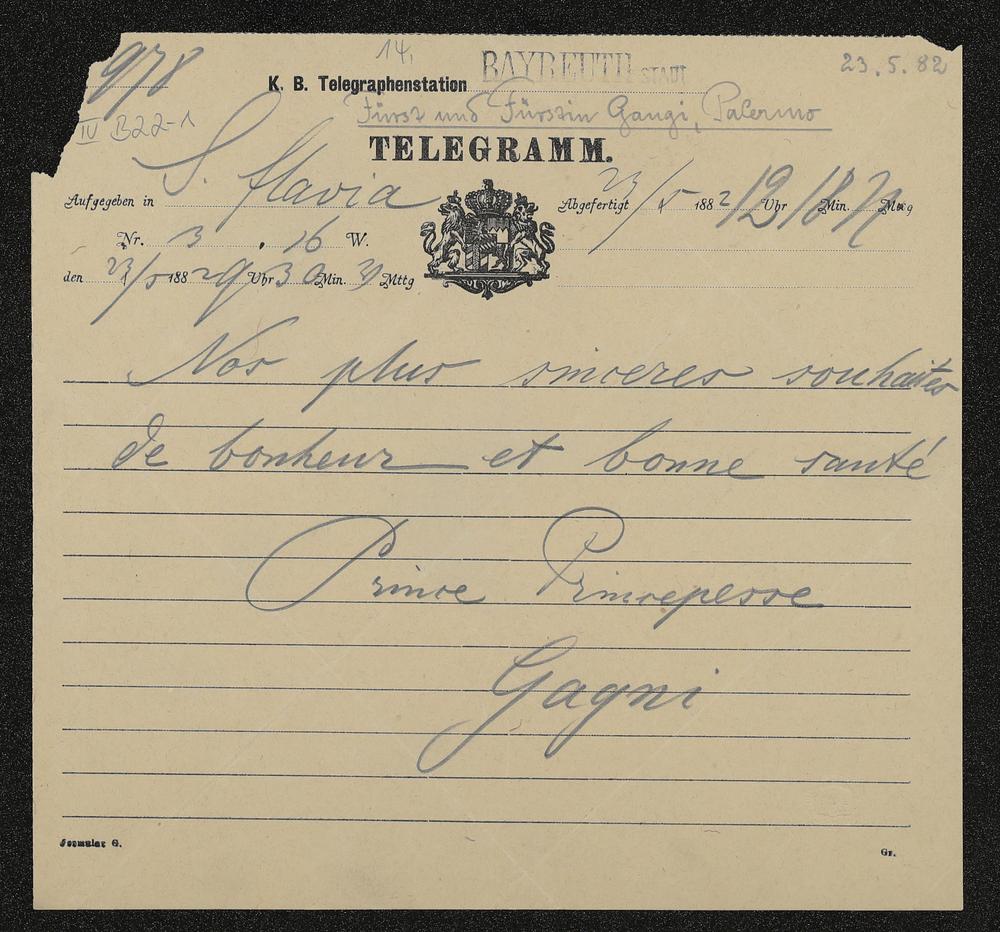 978
14,
BAYREUTH STADT
23.5.82
K. B. Telegraphenstation
Fürst und Fürstin Gangi, Palermo
IV B22-1
TELEGRAMM.
Aufgegeben in S. flavia
Abgefertigt 23/5 1882 12 Uhr 18 Min. Mttg
Nr. 3 . 16 W.
den 23/5 1882 9 Uhr 30 Min. Mttg
Nos plus sinceres souhaites
de bonheur et bonne santé
Prince Princepesse
Gagni
Formular G.
Gr.